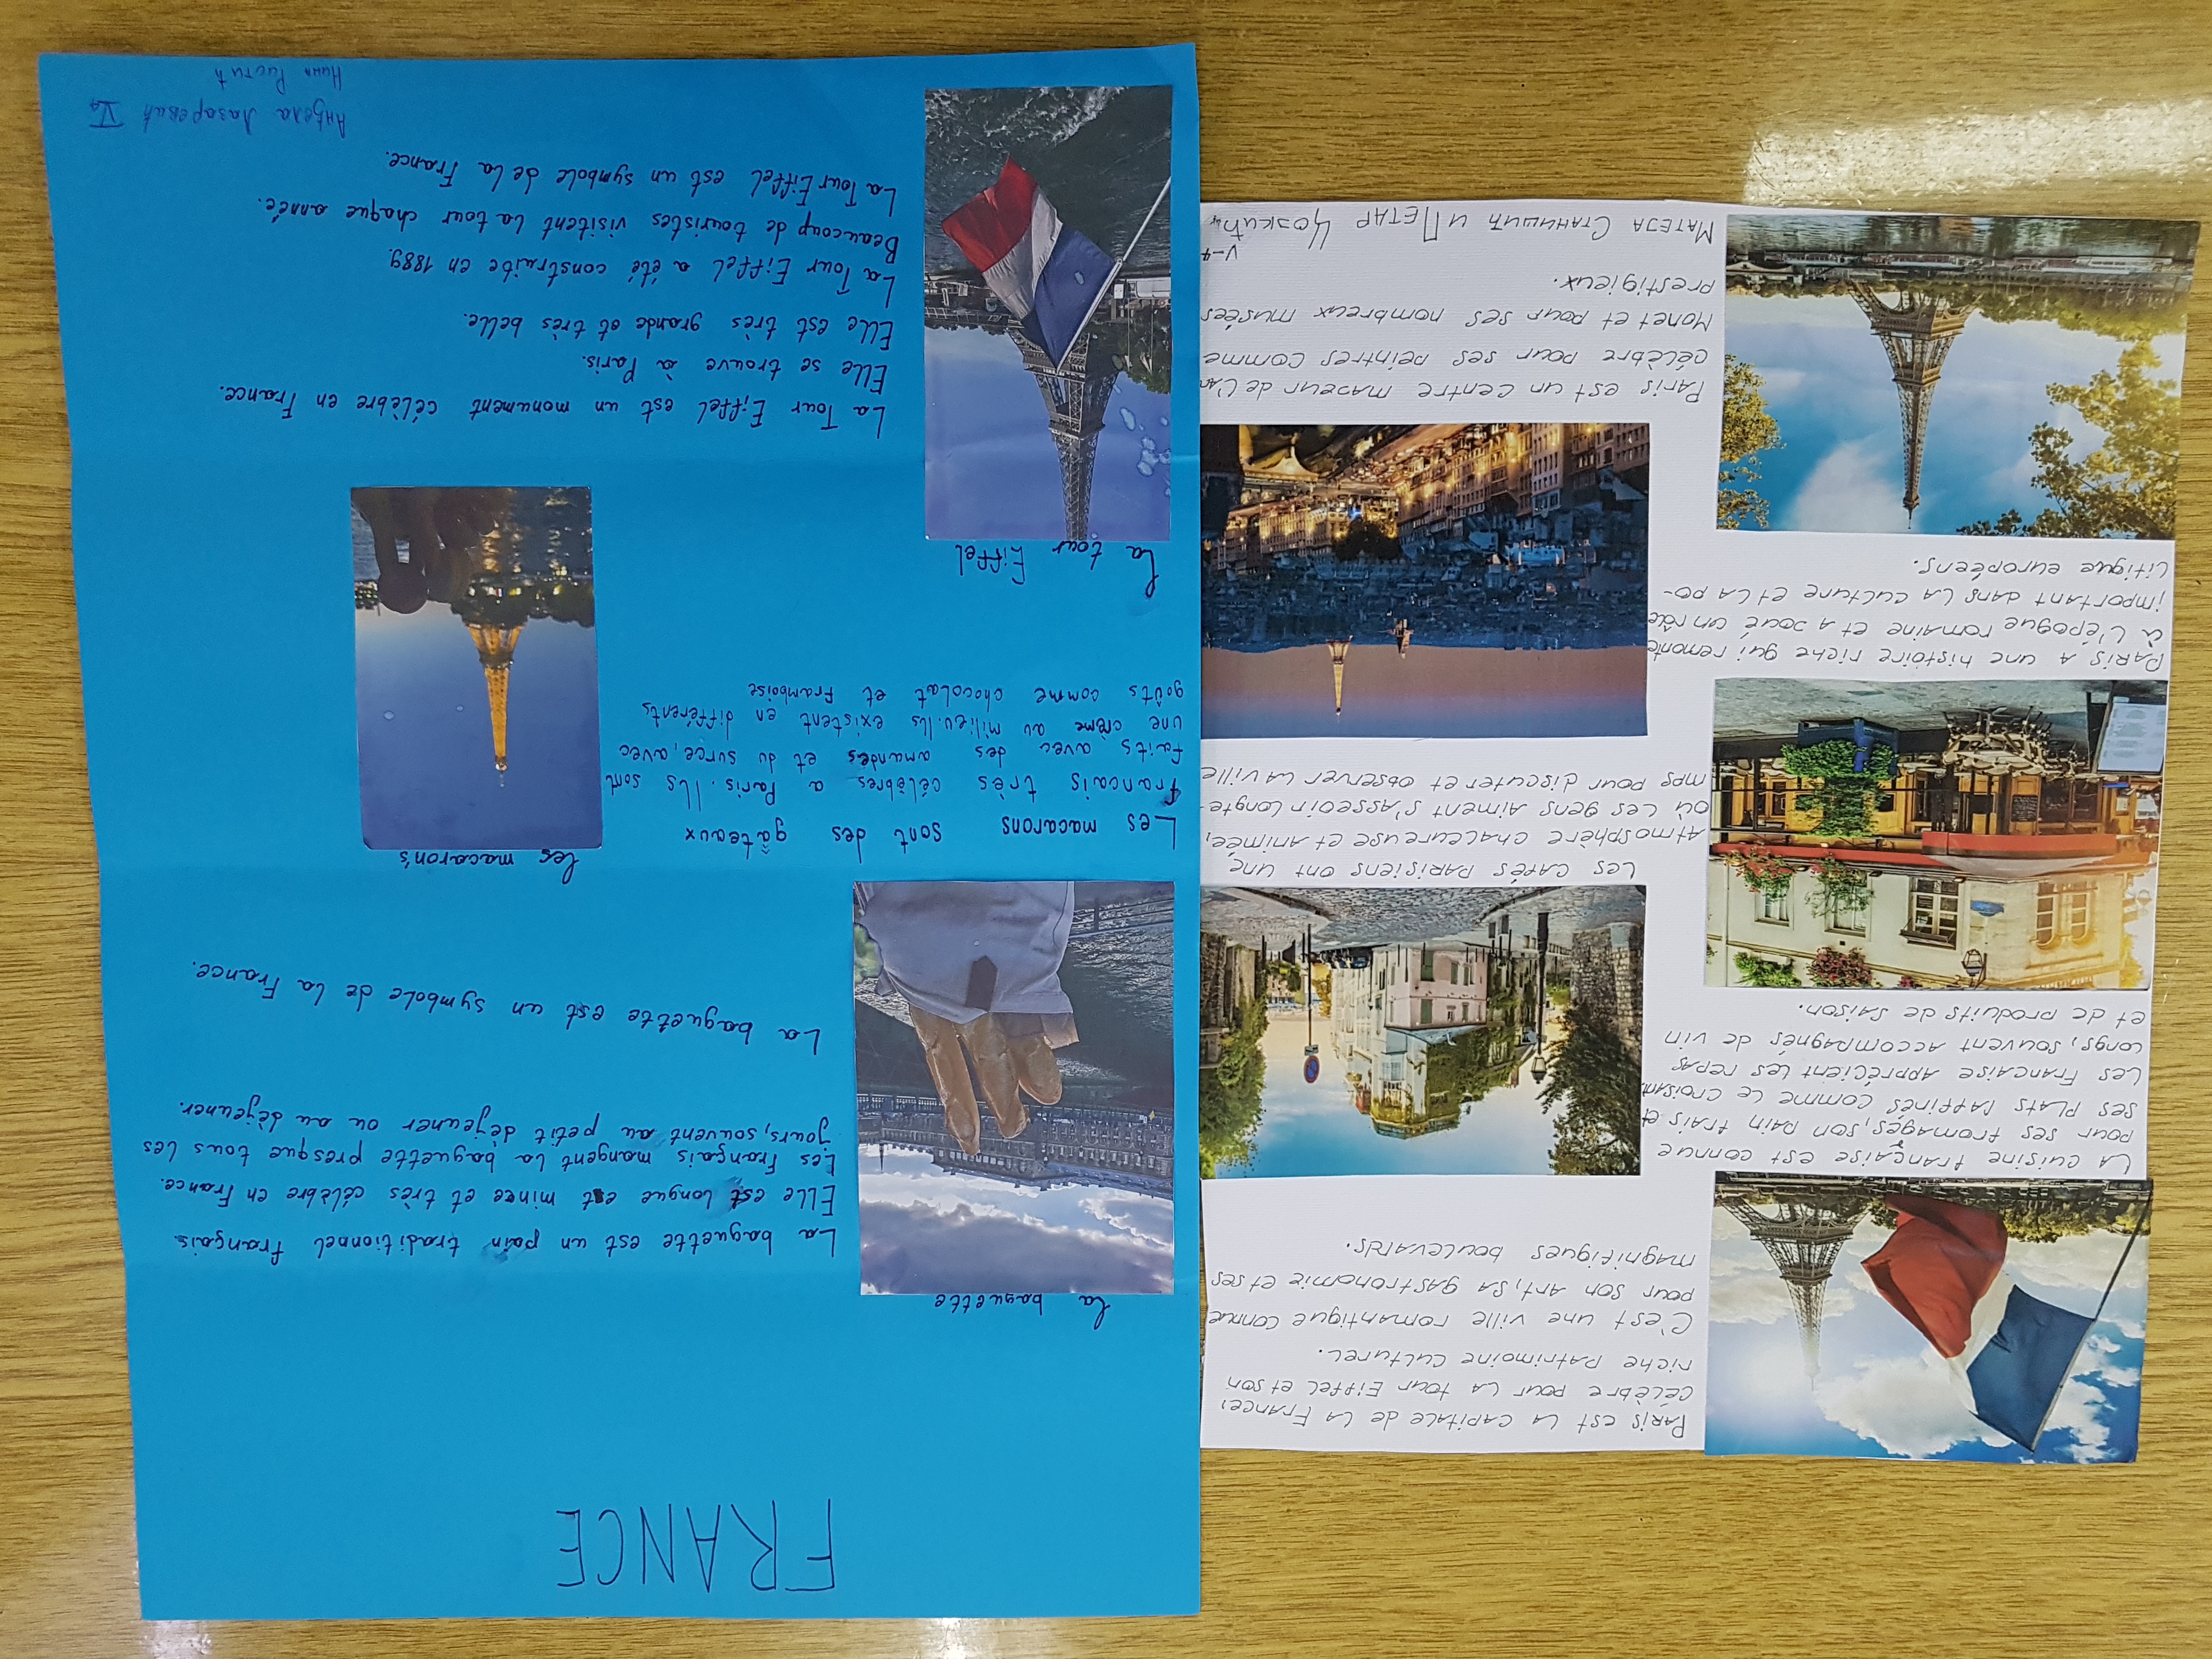 Paris est la capitale de la France,
célèbre pour la tour Eiffel et son
riche patrimoine culturel.
C'est une ville romantique connue
pour son art, sa gastronomie et ses
magnifiques boulevards.
La cuisine française est connue
pour ses fromages, son pain frais et
ses plats raffinés comme le croissant
Les Française apprécient les repas
longs, souvent accompagnés de vin
et de produits de saison.
Les cafés parisiens ont une
atmosphère chaleureuse et animée,
où les gens aiment s'asseoir longte-
mps pour discuter et observer la ville
Paris a une histoire riche qui remonte
à l'époque romaine et a joué un rôle
important dans la culture et la po-
litique européens.
Paris est un centre majeur de l'art
célèbre pour ses peintres comme
Monet et pour ses nombreux musées
prestigieux.
V-4
Матеја Станишић и Петар
FRANCE
La baguette
La baguette est un pain traditionnel français
Elle est longue et mince et très célèbre en France.
Les Français mangent la baguette presque tous les
jours, souvent au petit déjeuner ou au déjeuner.
La baguette est un symbole de la France.
Les macaron's
Les macarons sont des gâteaux
francais très célèbres a Paris. Ils sont
faits avec des amandes et du surce, avec
une crème au milieu. Ils existent en différents
goûts comme chocolat et framboise
La tour Eiffel
La Tour Eiffel est un monument célèbre en France.
Elle se trouve à Paris.
Elle est très grande et très belle.
La Tour Eiffel a été construite en 1889.
Beaucoup de touristes visitent la tour chaque année.
La Tour Eiffel est un symbole de la France.
Анђела Лазаревић V4
Ристић